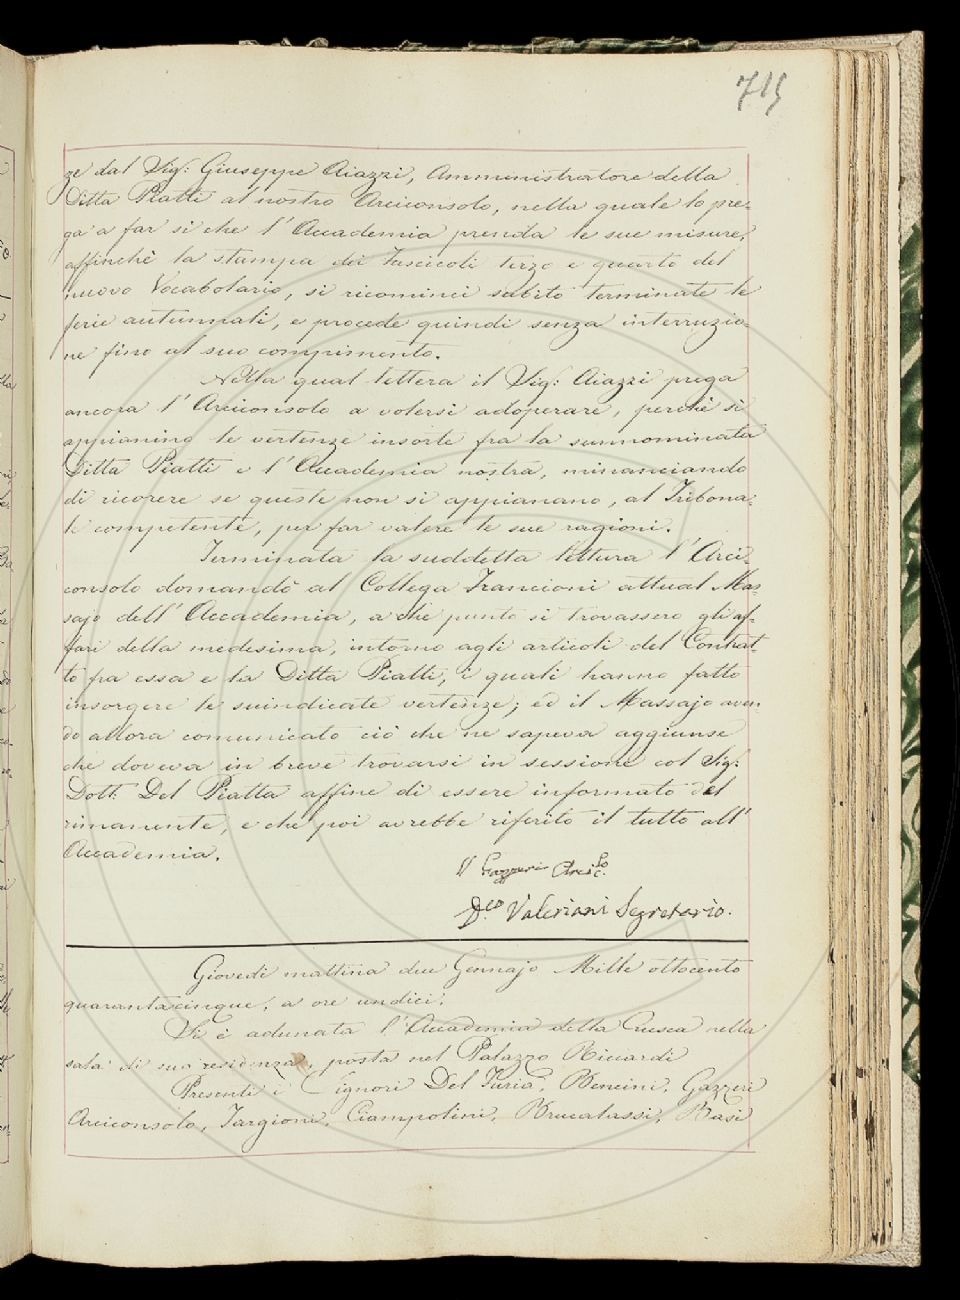 715
ze dal Sig: Giuseppe Aiazzi, Amministratore della
Ditta Piatti al nostro Arciconsolo, nella quale lo pre-
ga a far si che l'Accademia prenda le sue misure,
affinchè la stampa dei Fascicoli terzo e quarto del
nuovo Vocabolario, si ricominci subito terminate le
ferie autunnali, e procede quindi senza interruzio-
ne fino al suo compimento.
Nella qual lettera il Sig: Aiazzi prega
ancora l'Arciconsolo a volersi adoperare, perchè si
appianino le vertenze insorte fra la sunnominata
Ditta Piatti e l'Accademia nostra, minanciando
di ricorere se queste non si appianano, al Tribona-
le competente, per far valere le sue ragioni.
Terminata la suddetta lettura l'Arci-
consolo domandò al Collega Francioni attual Mas-
sajo dell'Accademia, a che punto si trovassero gli af-
fari della medesima, intorno agli articoli del Contrat-
to fra essa e la Ditta Piatti, i quali hanno fatto
insorgere le suindicate vertenze; ed il Massajo aven-
do allora comunicato ciò che ne sapeva aggiunse
che doveva in breve trovarsi in sessione col Sig:
Dott: Del Piatta affine di essere informato del
rimanente, e che poi avrebbe riferito il tutto all'
Accademia.
G Gazzeri Arcic.lo
D.co Valeriani Segretario.
Giovedì mattina due Gennajo Mille ottocento
quarantacinque, a ore undici.
Si è adunata l'Accademia della Crusca nella
sala di sua residenza, posta nel Palazzo Riccardi
Presenti i Signori Del Furia, Bencini, Gazzeri
Arciconsolo, Targioni, Ciampolini, Brucalassi, Basi